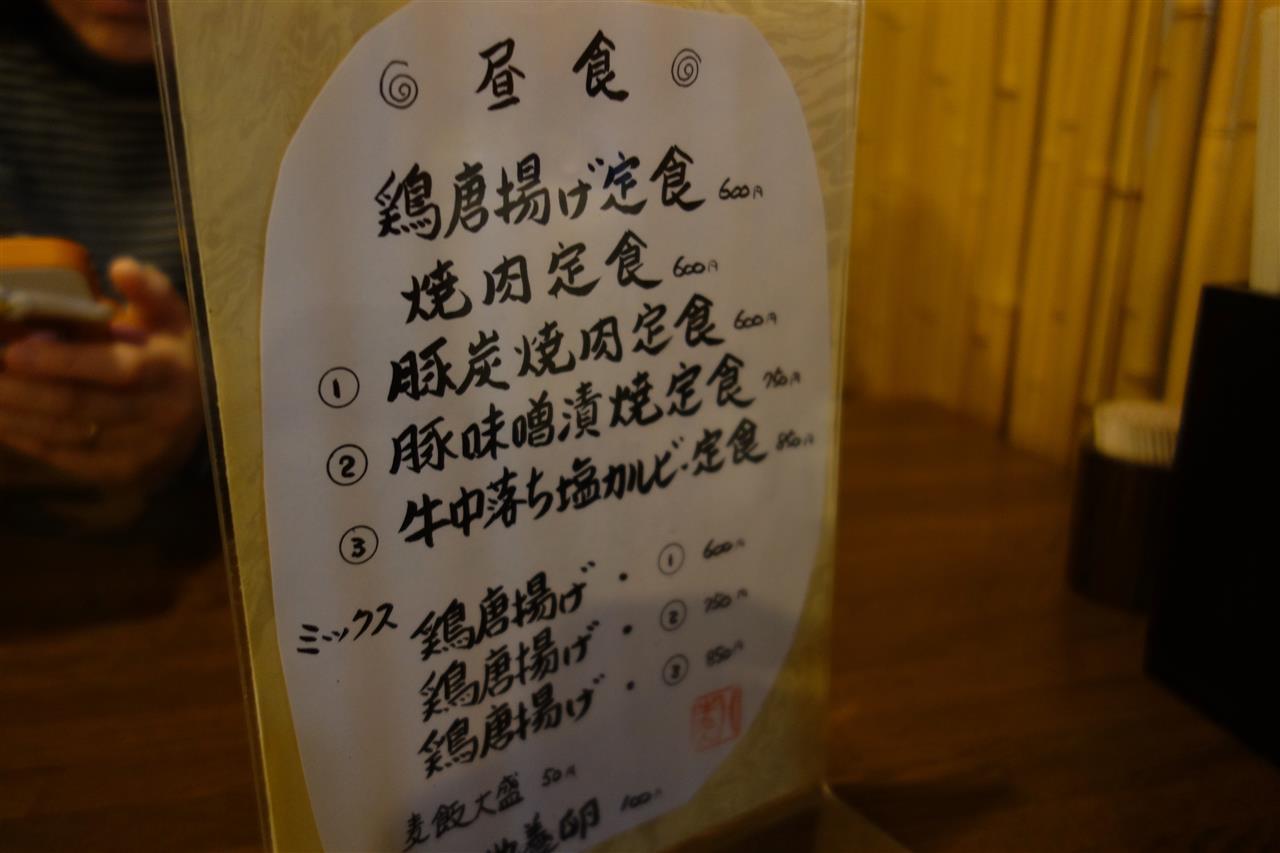 昼食
鶏唐揚げ定食 600円
焼肉定食 600円
① 豚炭焼肉定食 600円
② 豚味噌漬焼定食 750円
③ 牛中落ち塩カルビ定食 850円
ミックス 鶏唐揚げ・① 600円
鶏唐揚げ・② 750円
鶏唐揚げ・③ 850円
麦飯大盛 50円
卵 100円